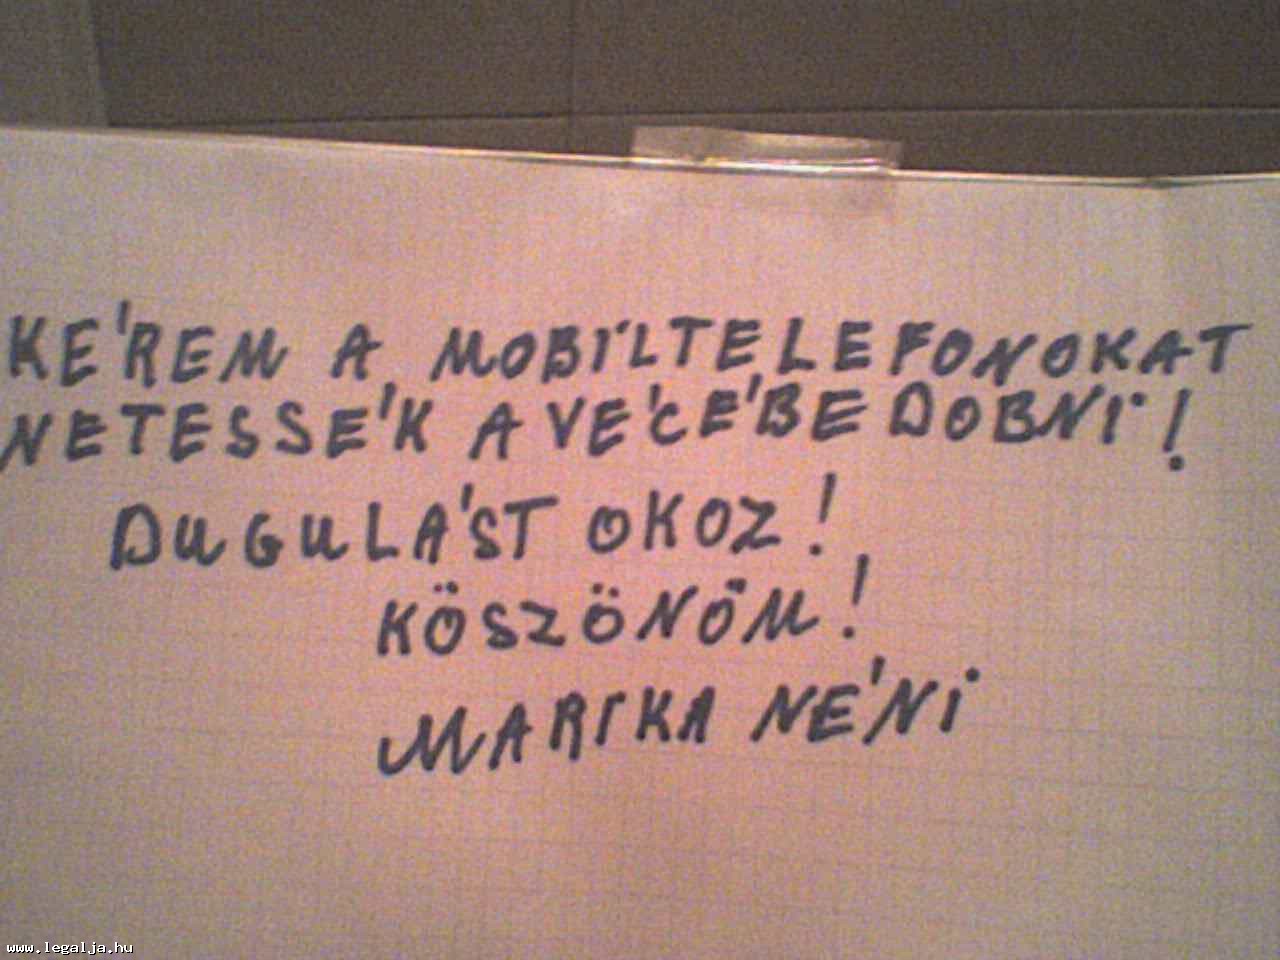 KÉREM A MOBÍLTELEFONOKAT
NETESSÉK A VÉCÉBE DOBNI!
DUGULÁST OKOZ!
KÖSZÖNÖM!
MARIKA NÉNI
www.legalja.hu